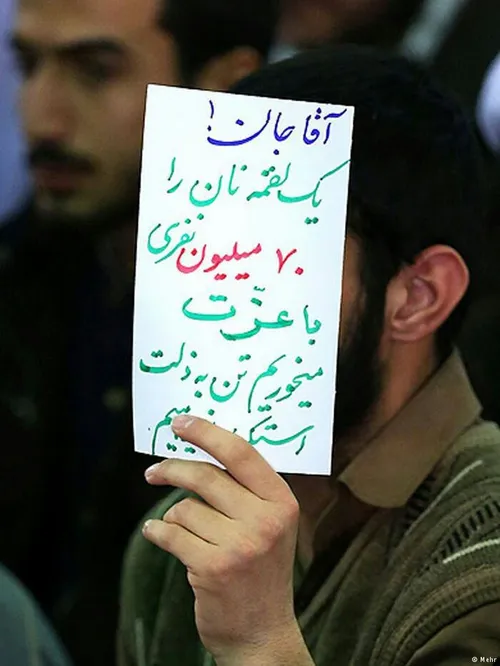 آقا جان!
یک لقمه نان را
۷۰ میلیون نفری
با عزّت
میخوریم تن به ذلت
© Mehr